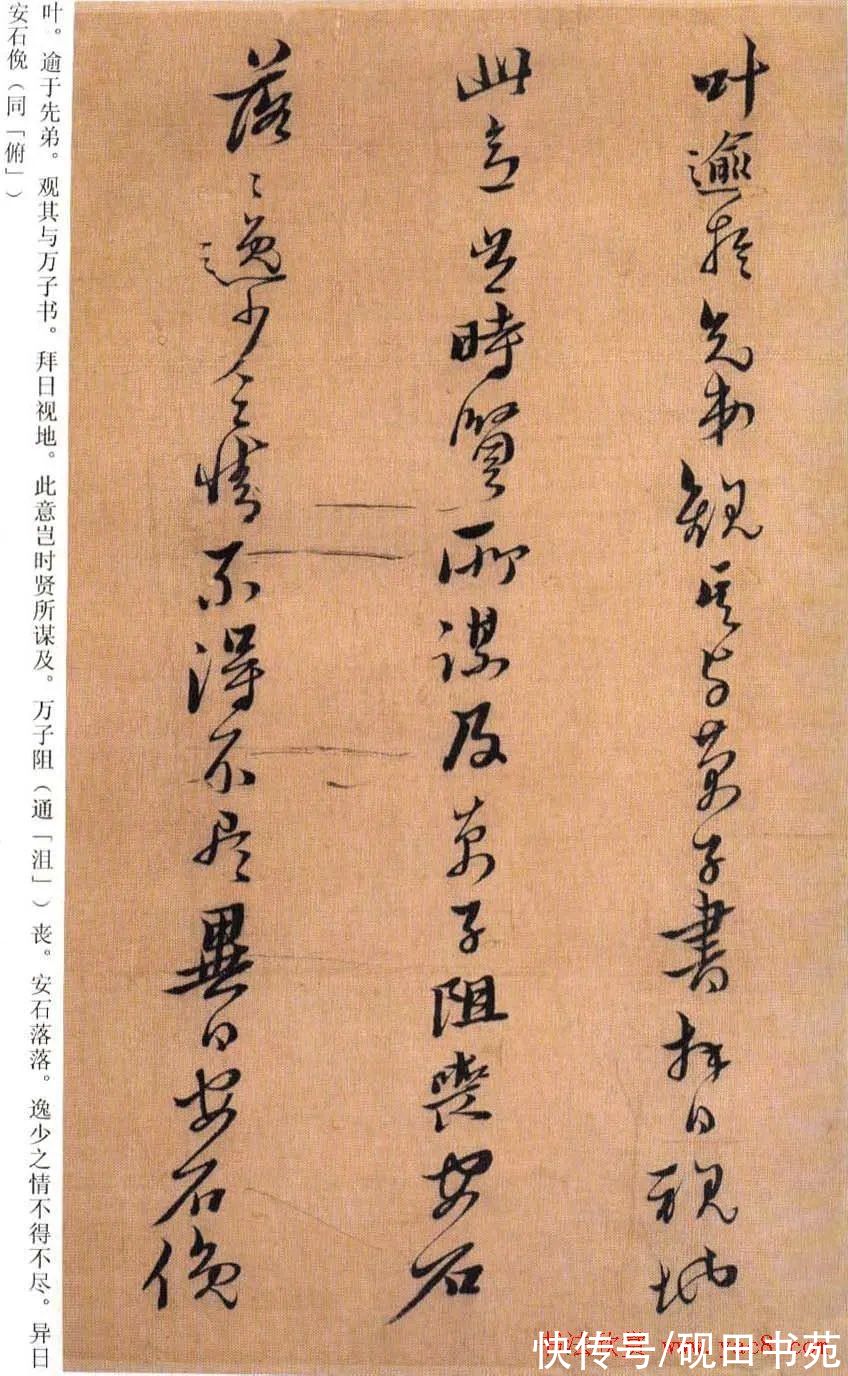 叶逾於先弟觀其与萬子書拜日視地
此意岂時賢所謀及萬子阻喪安石
落〻逸少之情不得不尽異日安石俛
叶。逾于先弟。观其与万子书。拜日视地。此意岂时贤所谋及。万子阻（通「沮」）丧。安石落落。逸少之情不得不尽。异日
安石俛（同「俯」）
快传号/砚田书苑